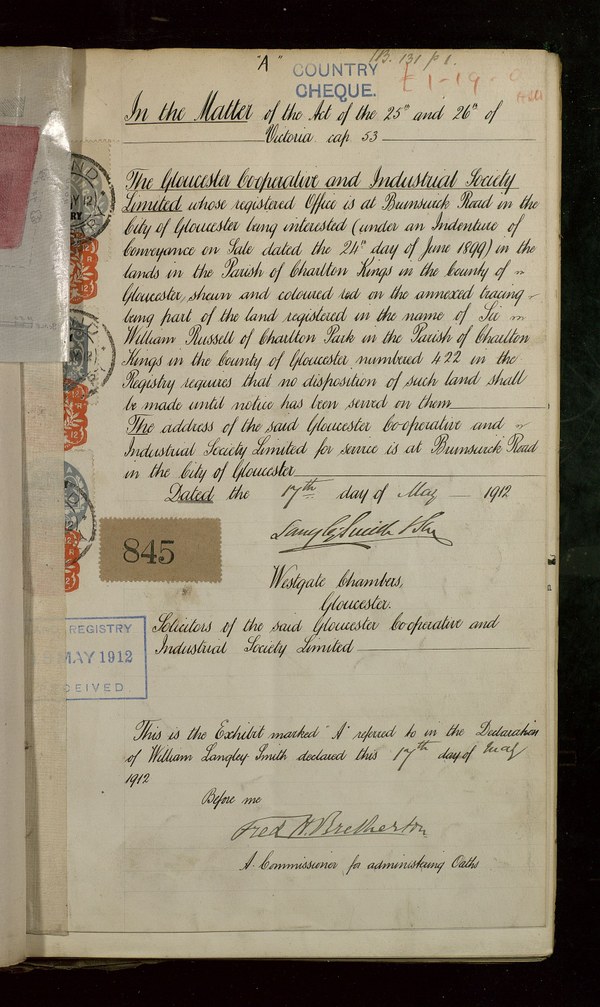 "A"
1B. 131 p 1.
COUNTRY
CHEQUE.
£1-19-0
In the Matter of the Act of the 25th and 26th of
Victoria cap. 53
The Gloucester Co-operative and Industrial Society
Limited whose registered Office is at Brunswick Road in the
City of Gloucester being interested (under an Indenture of
Conveyance on Sale dated the 24th day of June 1899) in the
lands in the Parish of Charlton Kings in the County of
Gloucester, shewn and coloured red on the annexed tracing
being part of the land registered in the name of Sir
William Russell of Charlton Park in the Parish of Charlton
Kings in the County of Gloucester numbered 422 in the
Registry requires that no disposition of such land shall
be made until notice has been served on them
The address of the said Gloucester Co-operative and
Industrial Society Limited for service is at Brunswick Road
in the City of Gloucester
Dated the 17th day of May 1912
Langley Smith & Son
845
Westgate Chambers,
Gloucester.
Solicitors of the said Gloucester Co-operative and
Industrial Society Limited
REGISTRY
MAY 1912
CEIVED
This is the Exhibit marked "A" referred to in the Declaration
of William Langley Smith declared this 17th day of May
1912
Before me
Fred H Bretherton
A Commissioner for administering Oaths